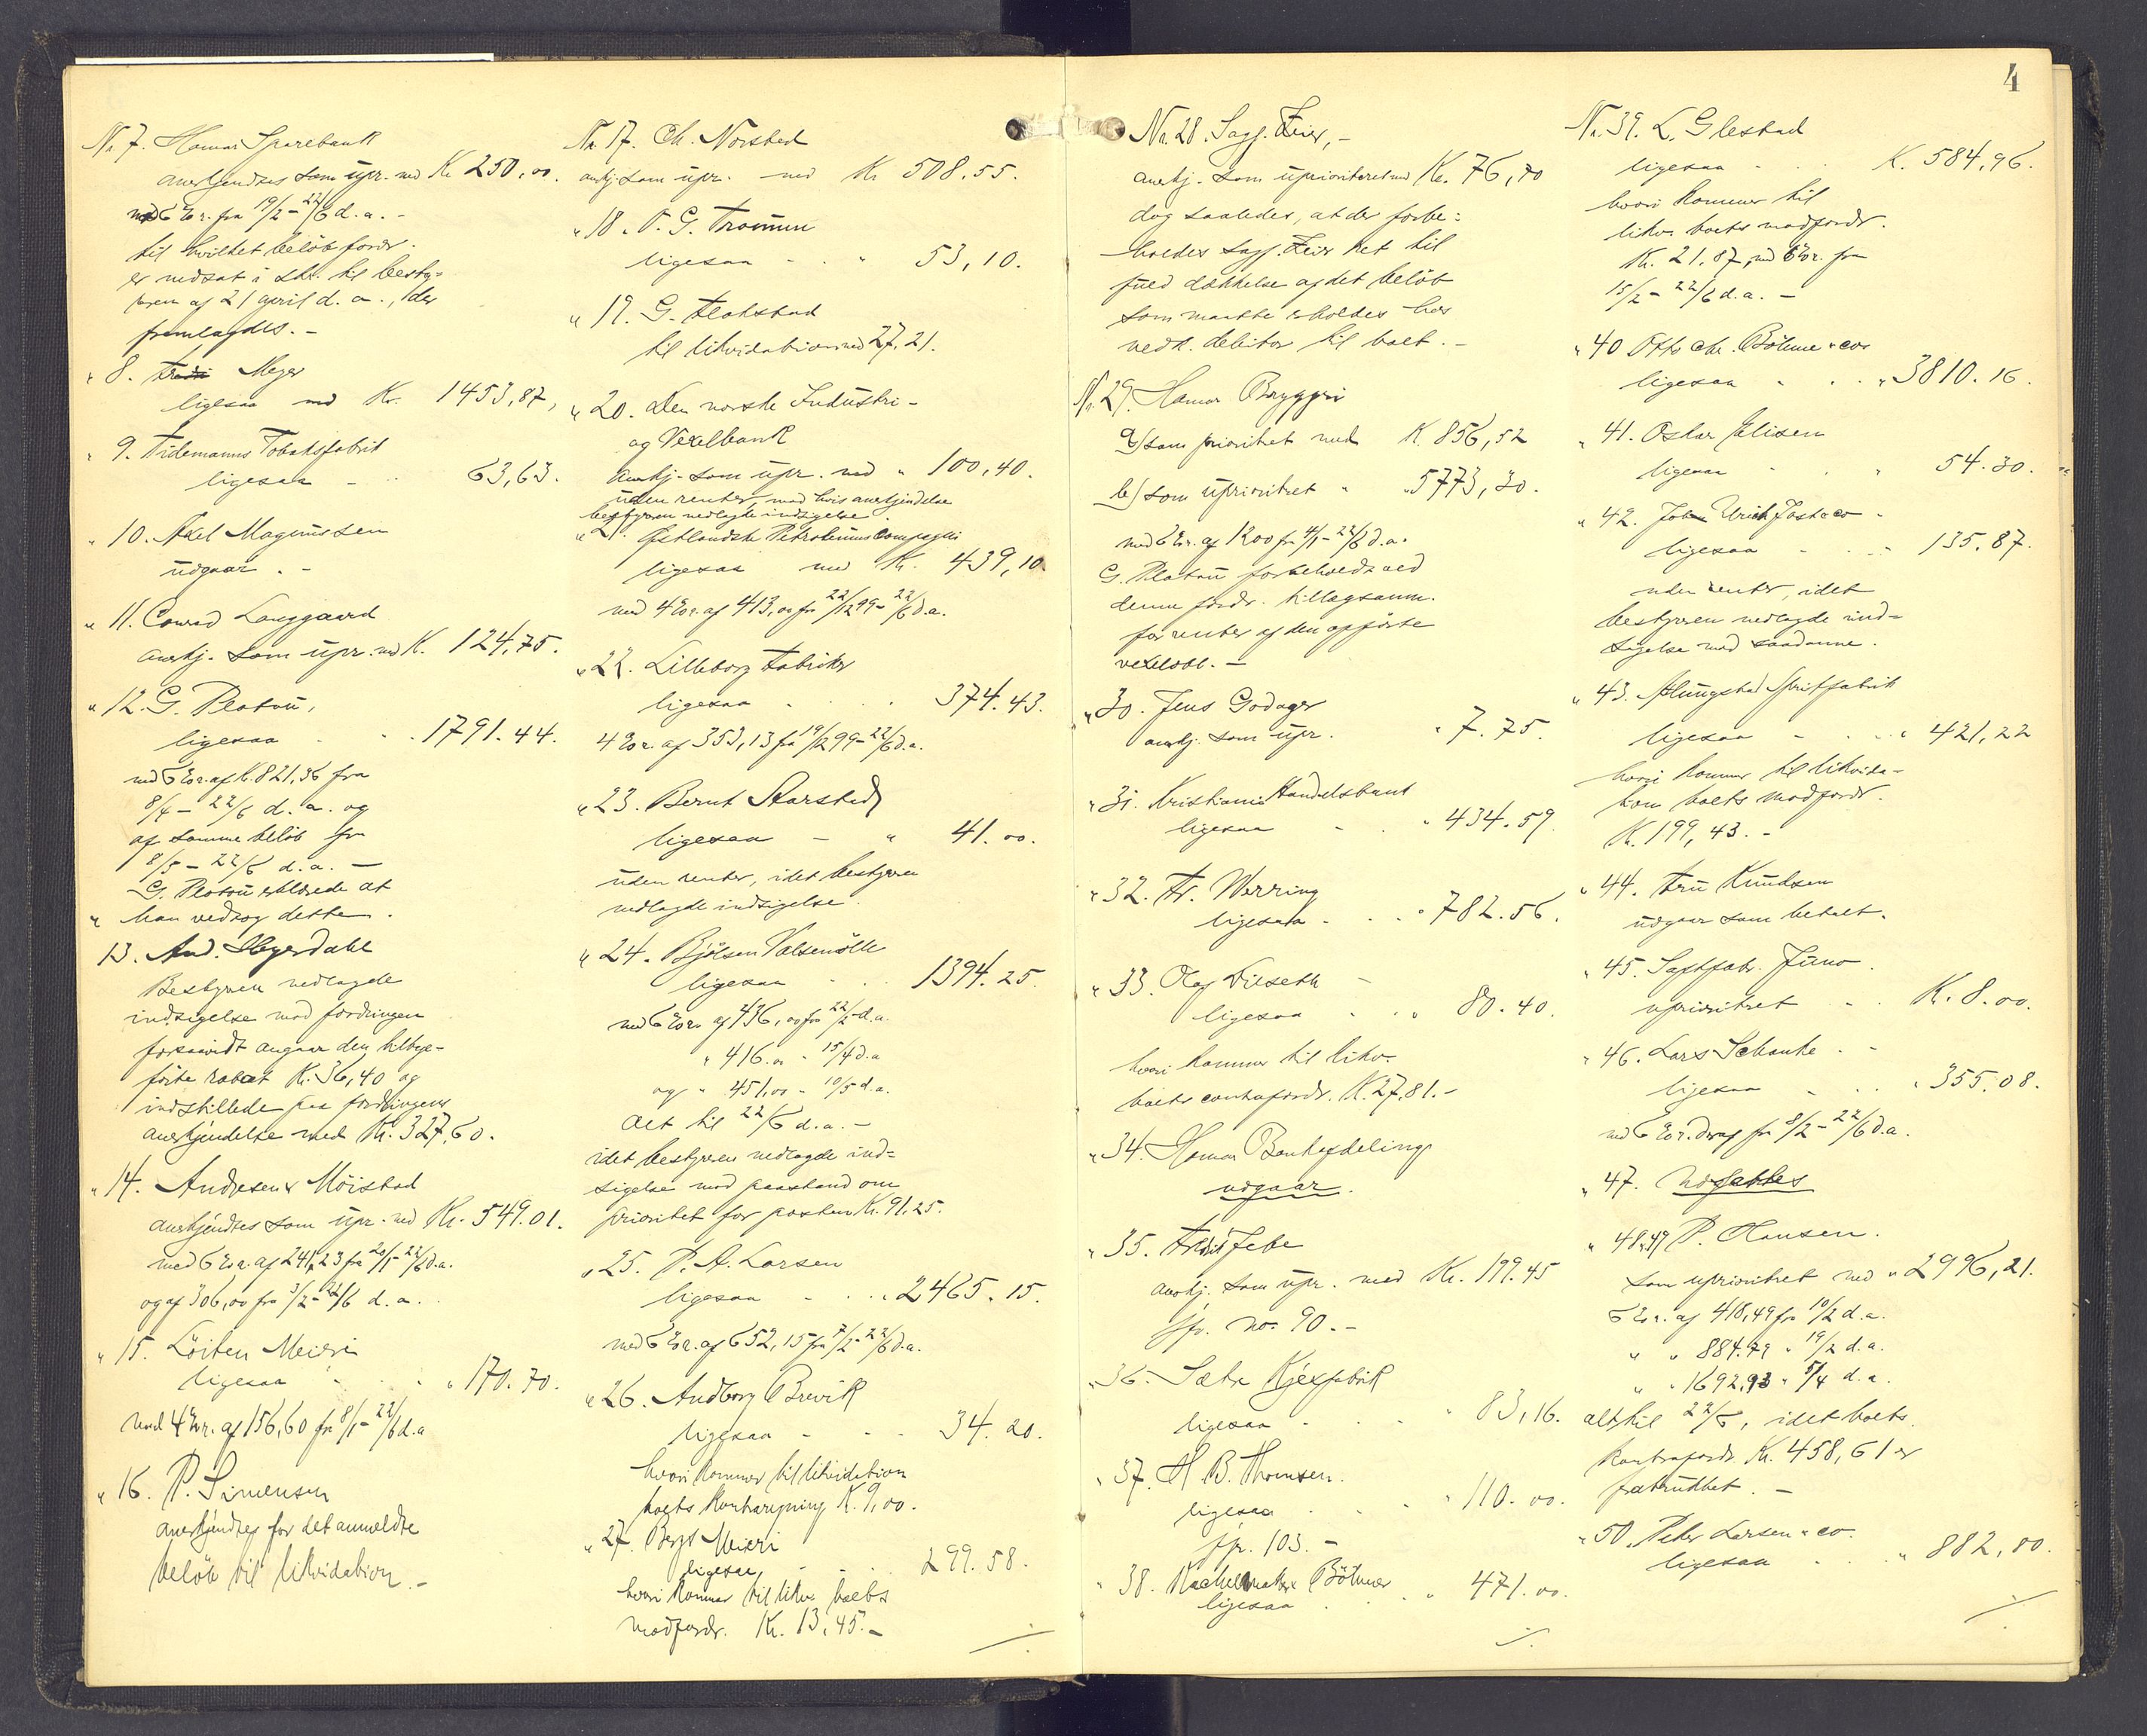 Nr. 7. Hamar Sparebank
anerkjendtes som upr. med Kr. 250,00.
med 6 % r. fra 19/2 - 22/6 d. a. -
til hvilket belöb fordr.
er nedsat i skr. til besty-
reren af 21 april d. a., der
fremlagdes. -
" 8. Meyer
ligesaa med Kr. 1453,87,
" 9. Tidemanns Tobaksfabrik
ligesaa - " 63,63.
" 10. Axel Magnussen
udgaar. -
" 11. Conrad Langgaard
anerkj. som upr. med K. 124,75.
" 12. G. Platou,
ligesaa - " 1791.44.
med 6 % r. af K. 821,36 fra
8/4 - 22/6 d. a. og
af samme belöb fra
8/5 - 22/6 d. a. -
G. Platou erklærede at
" han vedtog dette.
13. And. Heyerdahl
Bestyreren nedlagde
indsigelse mod fordringen
forsaavidt angaar den tilbage-
förte rabat K. 36,40 og
indstillede paa fordringens
anerkjendelse med Kr. 327,60.
" 14. Andresen & Möistad
anerkjendtes som upr. med Kr. 549.01.
med 6 % r. af 241,23 fra 20/1 - 22/6 d.a.
og af 306,00 fra 3/2 - 22/6 d. a.
" 15. Löiten Meieri
ligesaa - " 170.70.
med 4 % r. af 156,60 fra 8/1 - 22/6 d.a
" 16. P. Simensen
anerkjendtes for det anmeldte
belöb til likvidation. -
Nr. 17. Ch. Norstad
anerkj. som upr. med Kr 508.55.
" 18. P. G. Trommn
ligesaa - " 53,10.
" 19. G. Flakstad
til likvidation med 27,21.
" 20. Den norske Industri-
og Vexelbank
anerkj. som upr. med " 100,40.
uden renter, mod hvis anerkjendelse
bestyreren nedlagde indsigelse.
" 21. Østlandske Petroleumscompagni
ligesaa med Kr. 439,10.
med 4 % r. af 413,00 fra 22/12 99 - 22/6 d.a.
" 22. Lilleborg Fabriker
ligesaa - 374.43.
4 % r. af 353,13 fra 19/12 99 - 22/6 d.a.
" 23. Bernt Starstad
ligesaa - " 41.00.
uden renter, idet bestyreren
nedlagde indsigelse.
" 24. Bjölsen Valsemölle
ligesaa - 1394.25.
med 6 % r. af 436,00 fra 22/2 d.a.
" 416.00 " 15/4 d.a
og " 451,00 " 10/5 d.a.
Alt til 22/6 d.a. -
idet bestyreren nedlagde ind-
sigelse mod paastand om
prioritet for posten K. 91.25.
" 25. P. A. Larsen
ligesaa - " 2465.15.
med 6 % r. af 652,15 fra 7/2 - 22/6 d.a.
" 26. Andborg Brevik
ligesaa - - 34.20.
hvori kommer til likvidation
boets kontraregning K. 9,00.
" 27. Meieri
ligesaa, - 299.58.
hvori kommer til likv. boets
modfordr. Kr. 13,45. -
4
Nr. 28. Sagf. Feier, -
anerkj. som uprioriteret med Kr. 76,70
dog saaledes, at der forbe-
holdes sagf. Feier ret til
fuld dækkelse af det belöb
som maatte erholdes hos
vedk. debitor til boet. -
Nr. 29. Hamar Bryggeri
a) som prioritet med K. 856,52
b) som uprioritert " " 5773,30.
med 6 % r. af 1200 fra 4/1 - 22/6 d.a.
G. Platou forbeholdt ved
denne fordr. tillægsanm.
for renter af den opförte
vexelobl. -
" 30. Jens Godager
anerkj. som upr. " 7.75.
" 31. Kristiania Handelsbank
ligesaa " 434.59
" 32. Fr. Werring
ligesaa - " 782.56.
" 33. Olaf Vieseth -
ligesaa " 80.40.
hvori kommer til likv.
boets contrafordr. K. 27,81. -
" 34. Hamar Bankafdeling
udgaar.
" 35. Jebe
anerkj. som upr. med Kr. 199.45
jfr. no. 90. -
" 36. Sætre Kjexfabrik
ligesaa - " 83,16.
" 37. H. B. Thomsen.
ligesaa " 110.00.
jfr. 103. -
" 38. Kachelmaker Böhmer
ligesaa " 471.00.
Nr. 39. L. Glestad
ligesaa - K. 584,96.
hvori kommer til
likv. boets modfordr.
Kr. 21.87, med 6 % r. fra
15/2 - 22/6 d. a. -
" 40 Otto Chr. Böhme & co
ligesaa " " 3810.16.
" 41. Oskar Elisen
ligesaa " 54.30.
" 42. Joh Ulrich Jost & co -
ligesaa - " 135.87.
uden renter, idet
bestyreren nedlagde ind-
sigelse mod saadanne.
" 43. Spritfabrik
ligesaa - " 421,22
hvori kommer til likvida-
tion boets modfordr.
K. 199,43. -
" 44. Fru Knudsen
udgaar som betalt.
" 45. Saftfabr. Juno.
uprioritert - K. 8.00.
" 46. Lars Schanke. -
ligesaa - " 355.08.
med 6 % r. deraf fra 8/2 - 22/6 d.a.
" 47. Udsættes
" 48 & 49 P. Hansen.
som uprioritert med " 2996,21.
6 % r. af 418,49 fra 10/2 d.a.
" " 884.79 " 19/2 d.a.
" " 1692,93 " 5/4 d. a.
alt til 22/6, idet boets
kontrafordr. Kr. 458,61 er
fratrukket. -
" 50. Peter Larsen & co.
ligesaa " 882,80.